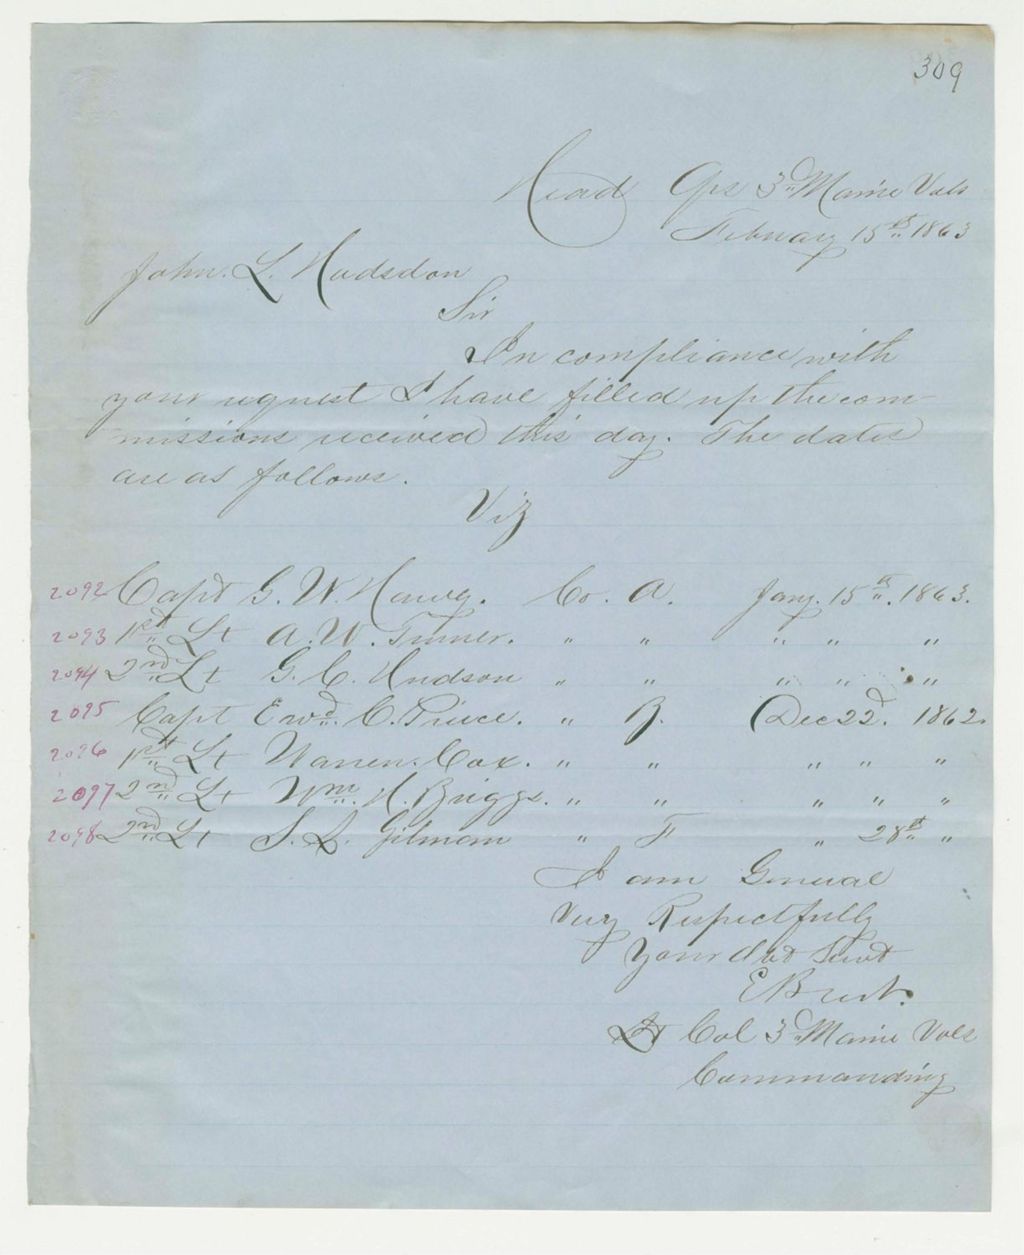 309
Head Qrs 3d Maine Vols
February 15th 1863
John. L. Hodsdon
Sir
In compliance with
your request I have filled up the com-
missions received this day. The dates
are as follows.
Viz
2092 Capt G. W. Harvey. Co. A. Jany. 15th. 1863.
2093 1st Lt A. W. Turner. " " " " "
2094 2nd Lt G. C. Hudson " " " " "
2095 Capt Ewd. C. Pierce. " B. Dec 22d. 1862.
2096 1st Lt Warren. Cox. " " " " "
2097 2nd Lt Wm. H. Briggs. " " " " "
2098 2nd Lt S. L. Gilman " F " 28th "
I am General
Very Respectfully
Your Obt Servt
E Burt.
Lt Col 3d Maine Vols
Commanding